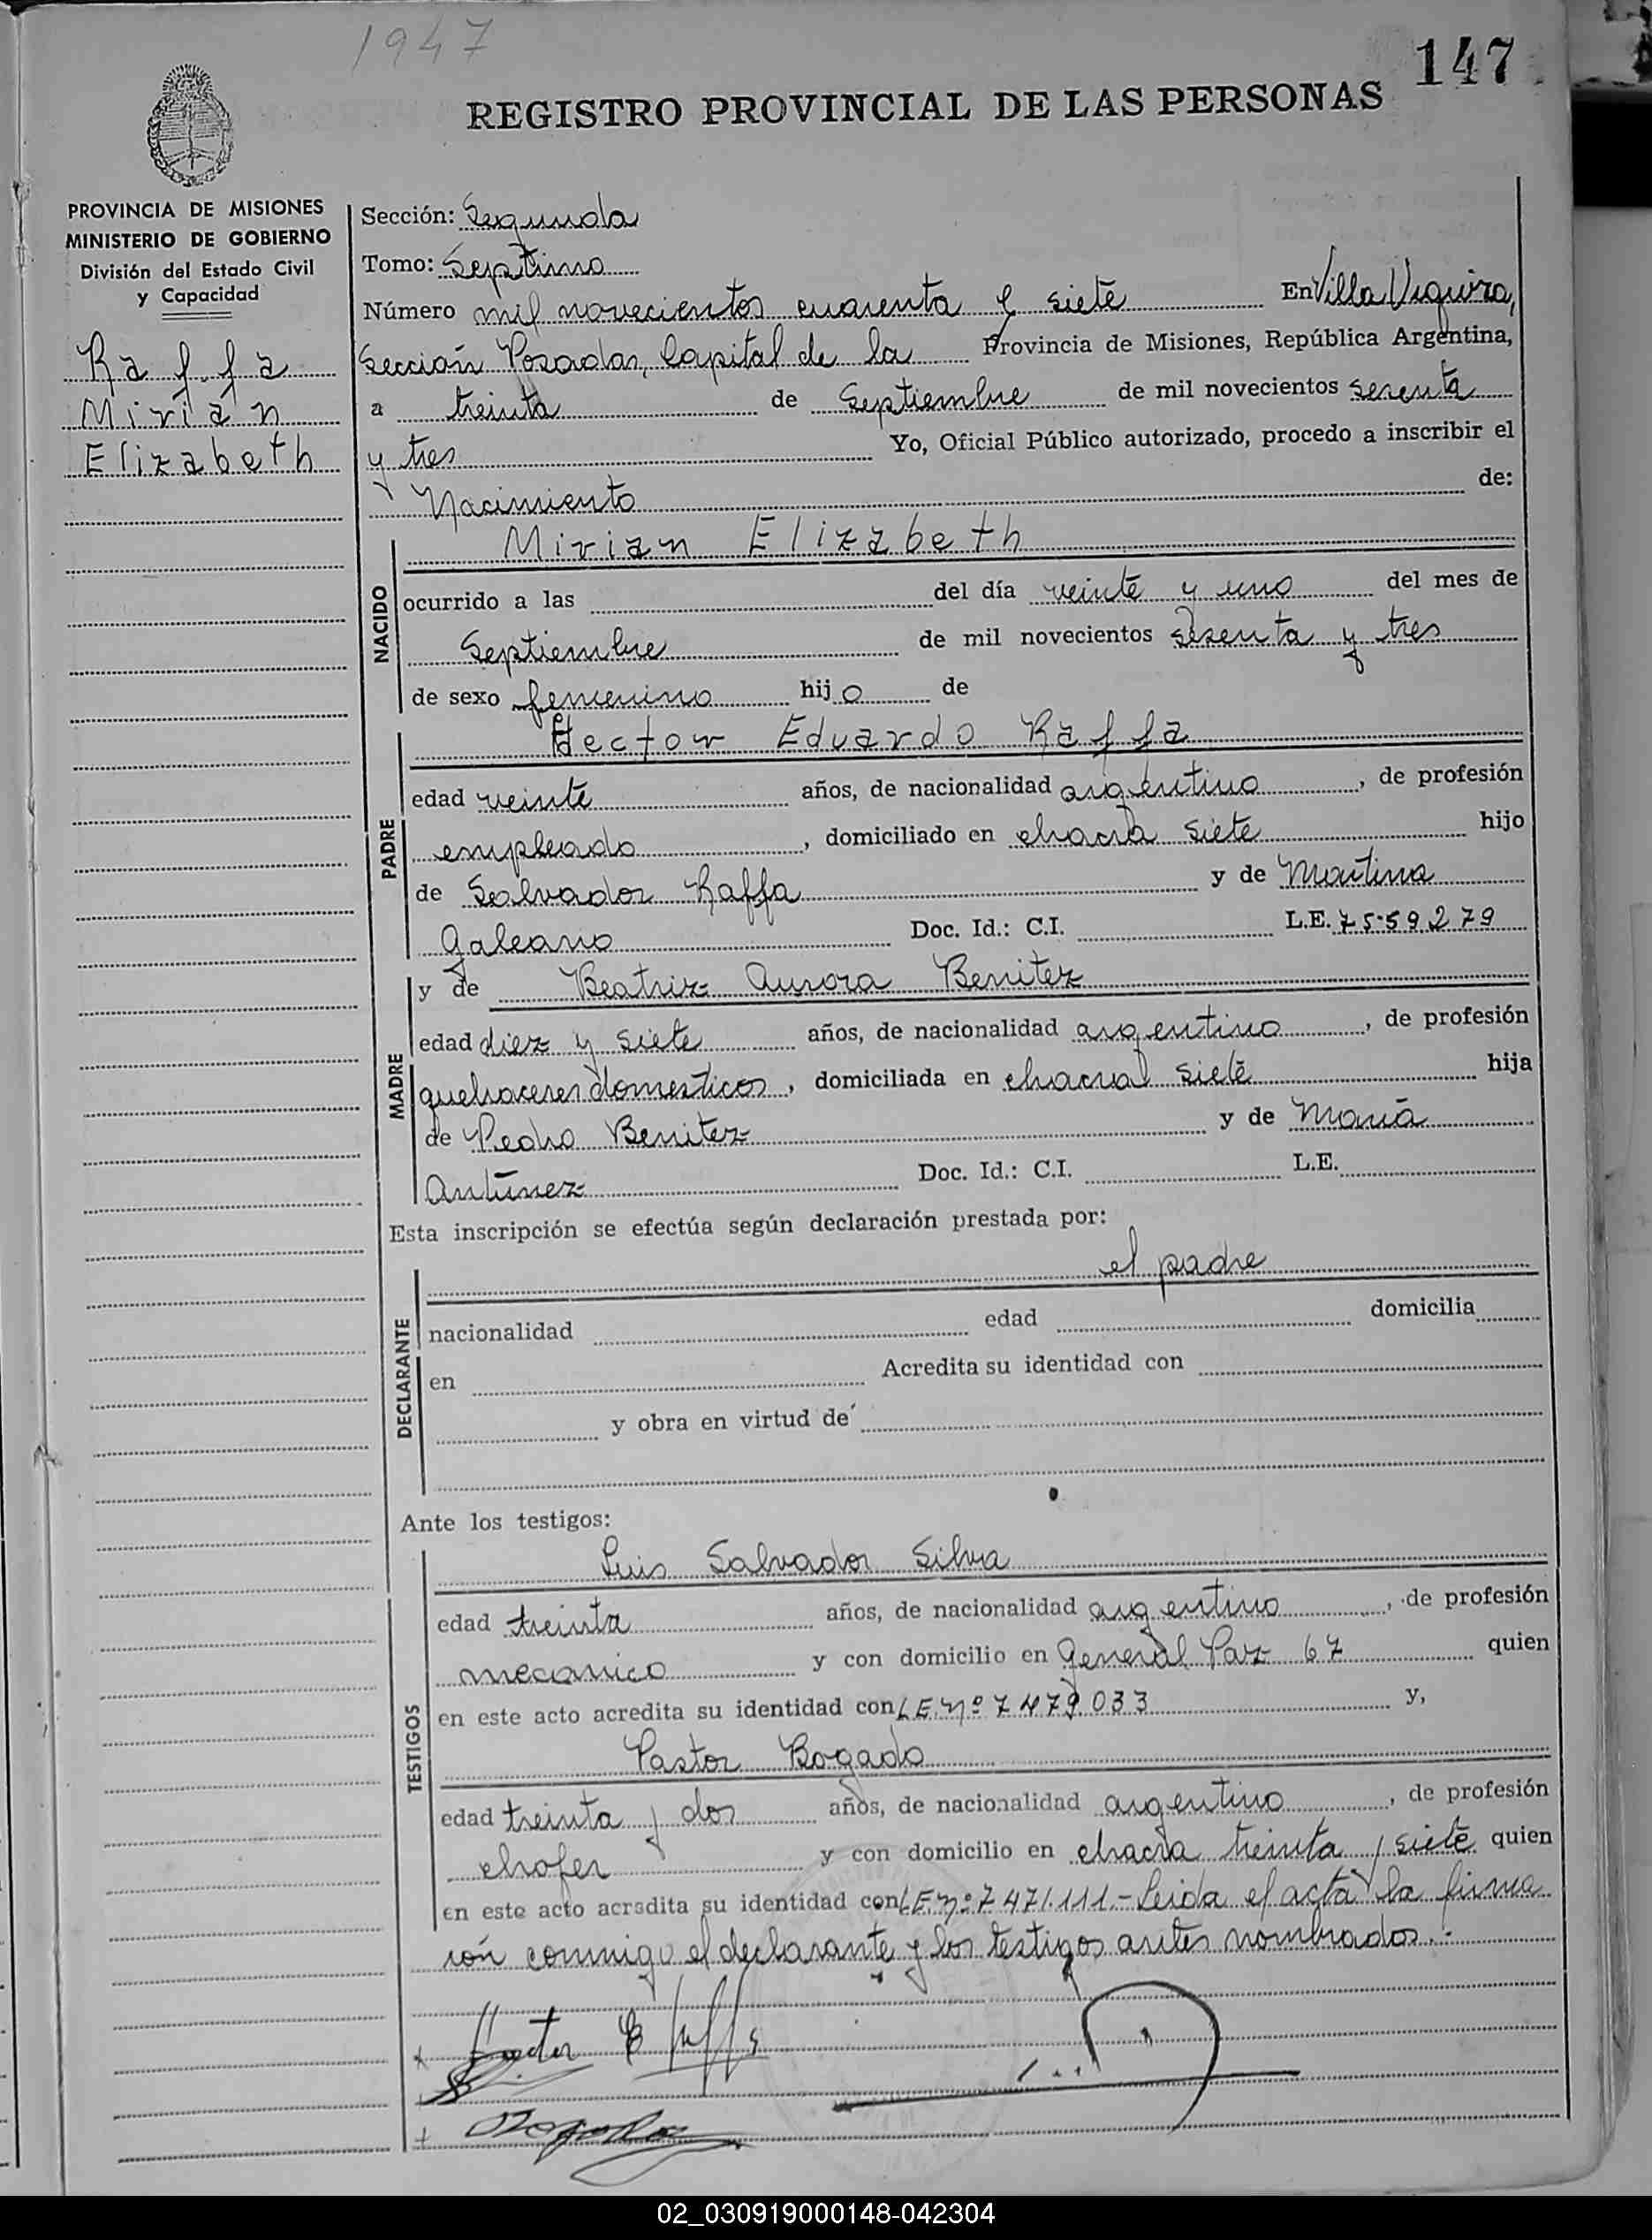 1947
147
REGISTRO PROVINCIAL DE LAS PERSONAS
PROVINCIA DE MISIONES
MINISTERIO DE GOBIERNO
División del Estado Civil
y Capacidad
Raffa
Mirian
Elizabeth
Sección: Segunda
Tomo: Septimo
Número mil novecientos cuarenta y siete En Villa Urquiza,
Sección Posadas, Capital de la Provincia de Misiones, República Argentina,
a treinta de Septiembre de mil novecientos sesenta
y tres Yo, Oficial Público autorizado, procedo a inscribir el
Nacimiento de:
NACIDO
Mirian Elizabeth
ocurrido a las del día veinte y uno del mes de
Septiembre de mil novecientos sesenta y tres
de sexo femenino hijo de
PADRE
Hector Eduardo Raffa
edad veinte años, de nacionalidad argentino, de profesión
empleado, domiciliado en chacra siete hijo
de Salvador Raffa y de Martina
Galeano Doc. Id.: C.I. L.E. 75·59279
MADRE
y de Beatriz Aurora Benitez
edad diez y siete años, de nacionalidad argentino, de profesión
quehaceres domesticos, domiciliada en chacra siete hija
de Pedro Benitez y de María
Antúnez Doc. Id.: C.I. L.E.
Esta inscripción se efectúa según declaración prestada por:
DECLARANTE
el padre
nacionalidad edad domicilia
en Acredita su identidad con
y obra en virtud de
Ante los testigos:
TESTIGOS
Luis Salvador Silva
edad treinta años, de nacionalidad argentino, de profesión
mecanico y con domicilio en General Paz 67 quien
en este acto acredita su identidad con L.E. nº 7479.033 y,
Pastor Bogado
edad treinta y dos años, de nacionalidad argentino, de profesión
chofer y con domicilio en chacra treinta y siete quien
en este acto acredita su identidad con L.E. nº 7471.111.- Leida el acta la firma
rón conmigo el declarante y los testigos antes nombrados.-
Hector E Raffa
Bogado
02_030919000148-042304